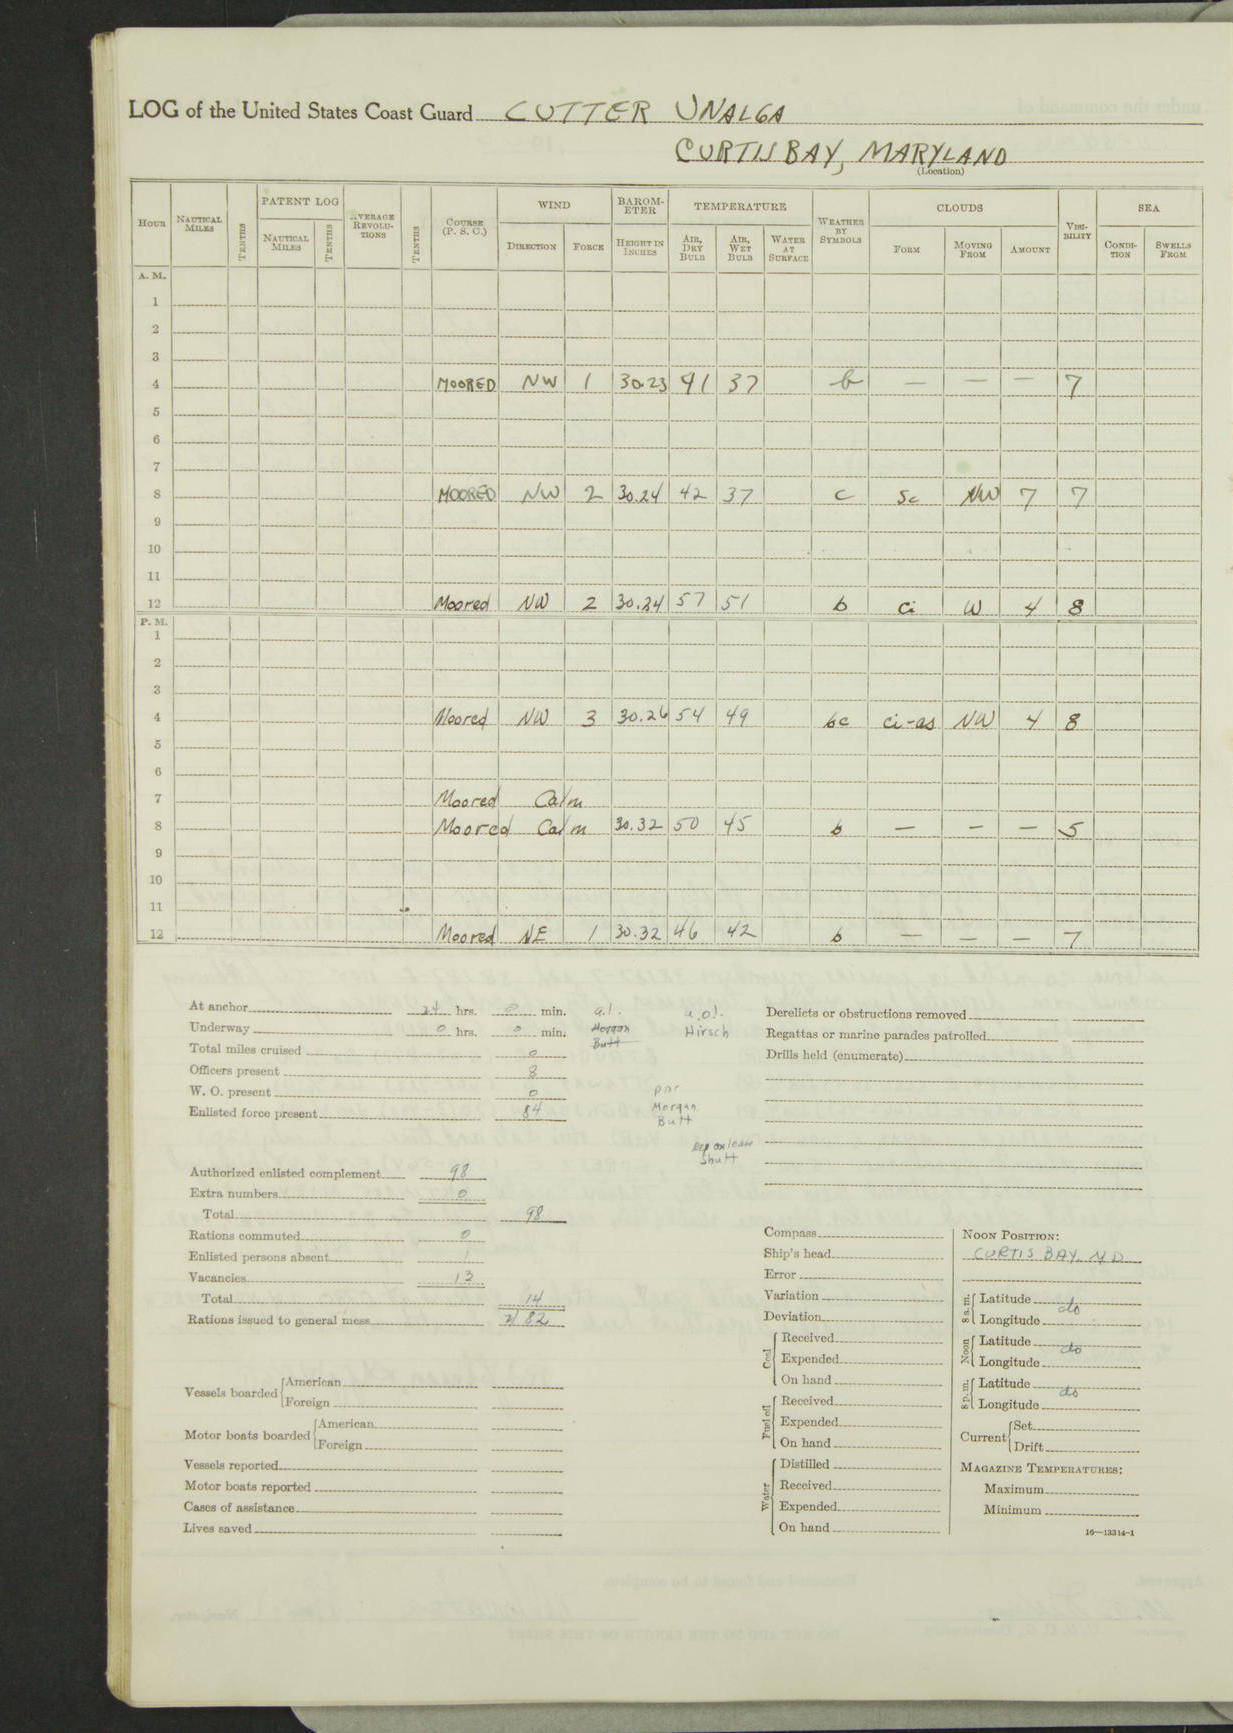 LOG of the United States Coast Guard CUTTER UNALGA
CURTIS BAY, MARYLAND
(Location)
HOUR NAUTICAL MILES TENTHS PATENT LOG NAUTICAL MILES TENTHS AVERAGE REVOLUTIONS TENTHS COURSE (P. S. C.) WIND DIRECTION FORCE BAROMETER HEIGHT IN INCHES TEMPERATURE AIR, DRY BULB AIR, WET BULB WATER AT SURFACE WEATHER BY SYMBOLS CLOUDS FORM MOVING FROM AMOUNT VISIBILITY SEA CONDITION SWELLS FROM
A. M.
1
2
3
4 MOORED NW 1 30.23 41 37 b — — — 7
5
6
7
8 MOORED NW 2 30.24 42 37 c Sc NW 7 7
9
10
11
12 Moored NW 2 30.24 57 51 b Ci W 4 8
P. M.
1
2
3
4 Moored NW 3 30.26 54 49 bc ci-as NW 4 8
5
6
7 Moored Calm
8 Moored Calm 30.32 50 45 b — — — 5
9
10
11
12 Moored NE 1 30.32 46 42 b — — — 7
At anchor 24 hrs. 0 min.
Underway 0 hrs. 0 min.
Total miles cruised 0
Officers present 8
W. O. present 0
Enlisted force present 84
a.l.
Morgan
Butt
a.o.l.
Hirsch
Morgan
Butt
Rep on leave
Shutt
Authorized enlisted complement 98
Extra numbers 0
Total 98
Rations commuted 0
Enlisted persons absent 1
Vacancies 13
Total 14
Rations issued to general mess 82
Vessels boarded American
Foreign
Motor boats boarded American
Foreign
Vessels reported
Motor boats reported
Cases of assistance
Lives saved
Derelicts or obstructions removed
Regattas or marine parades patrolled
Drills held (enumerate)
Compass
Ship's head
Error
Variation
Deviation
Coal Received
Expended
On hand
Fuel oil Received
Expended
On hand
Water Distilled
Received
Expended
On hand
NOON POSITION:
CURTIS BAY, MD
8 a.m. Latitude
do
Longitude
Noon Latitude
do
Longitude
8 p.m. Latitude
do
Longitude
Current Set
Drift
MAGAZINE TEMPERATURES:
Maximum
Minimum
16—13314-1